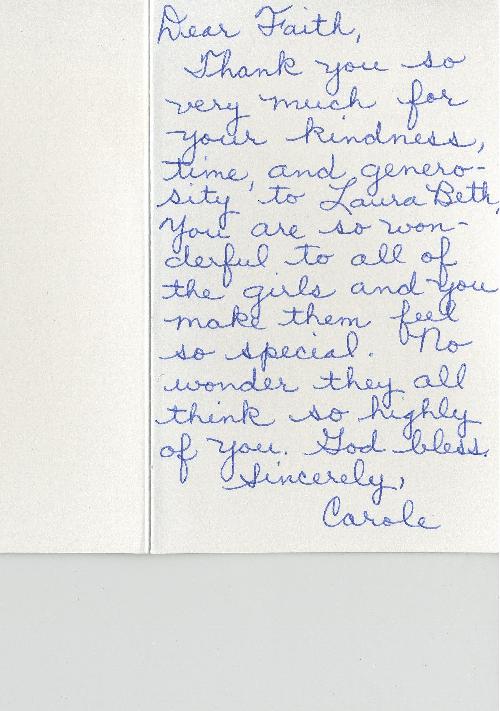 Dear Faith,
Thank you so
very much for
your kindness,
time, and genero-
sity to Laura Beth.
You are so won-
derful to all of
the girls and you
make them feel
so special. No
wonder they all
think so highly
of you. God bless.
Sincerely,
Carole